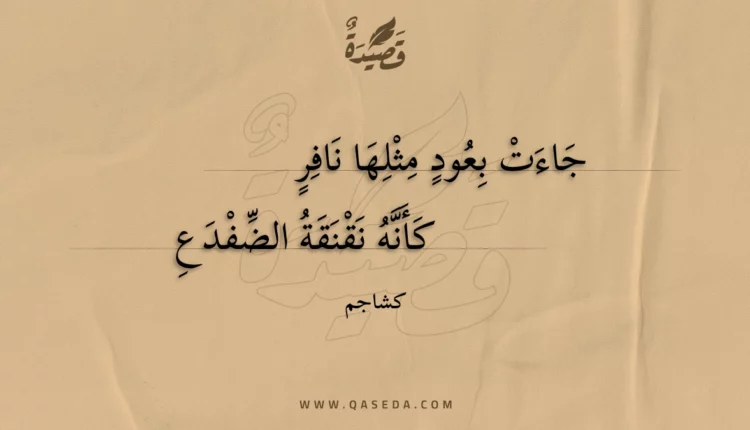 قَصِيدَةٌ
جَاءَتْ بِعُودٍ مِثْلِهَا نَافِرٍ
كَأَنَّهُ نَقْنَقَةُ الضِّفْدَعِ
كشاجم
WWW.QASEDA.COM